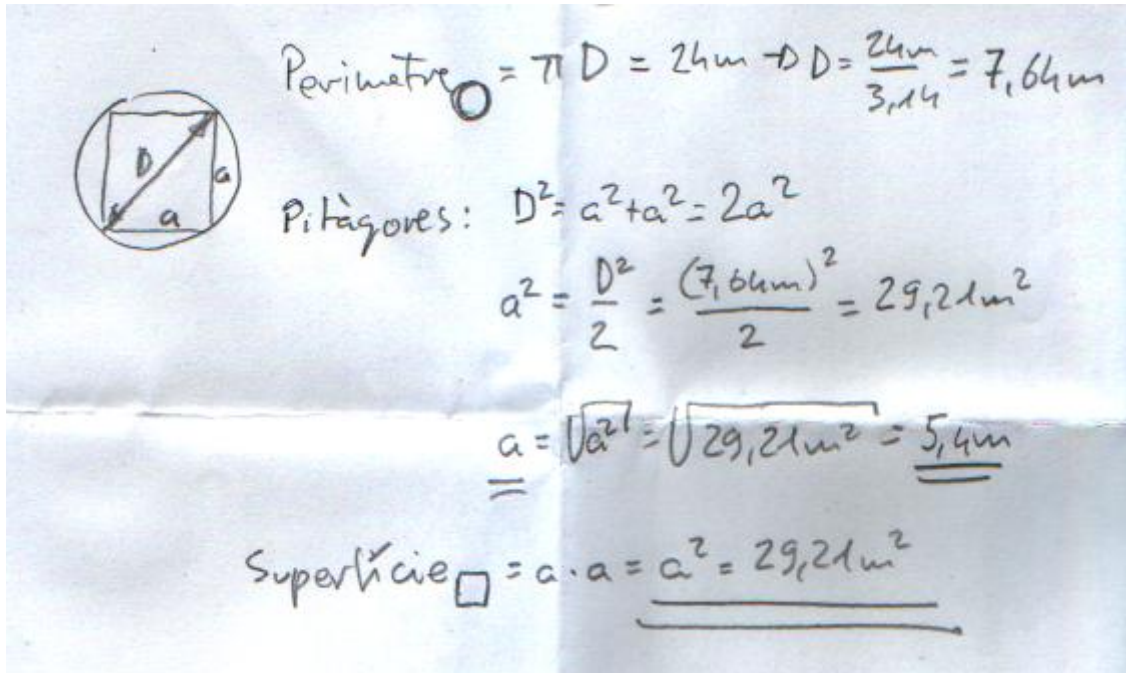 Perimetre○ = π D = 24m → D = 24m / 3,14 = 7,64m
D
a
a
Pitàgores: D² = a² + a² = 2a²
a² = D² / 2 = (7,64m)² / 2 = 29,21m²
a = √a² = √29,21m² = 5,4m
Superfície□ = a · a = a² = 29,21m²